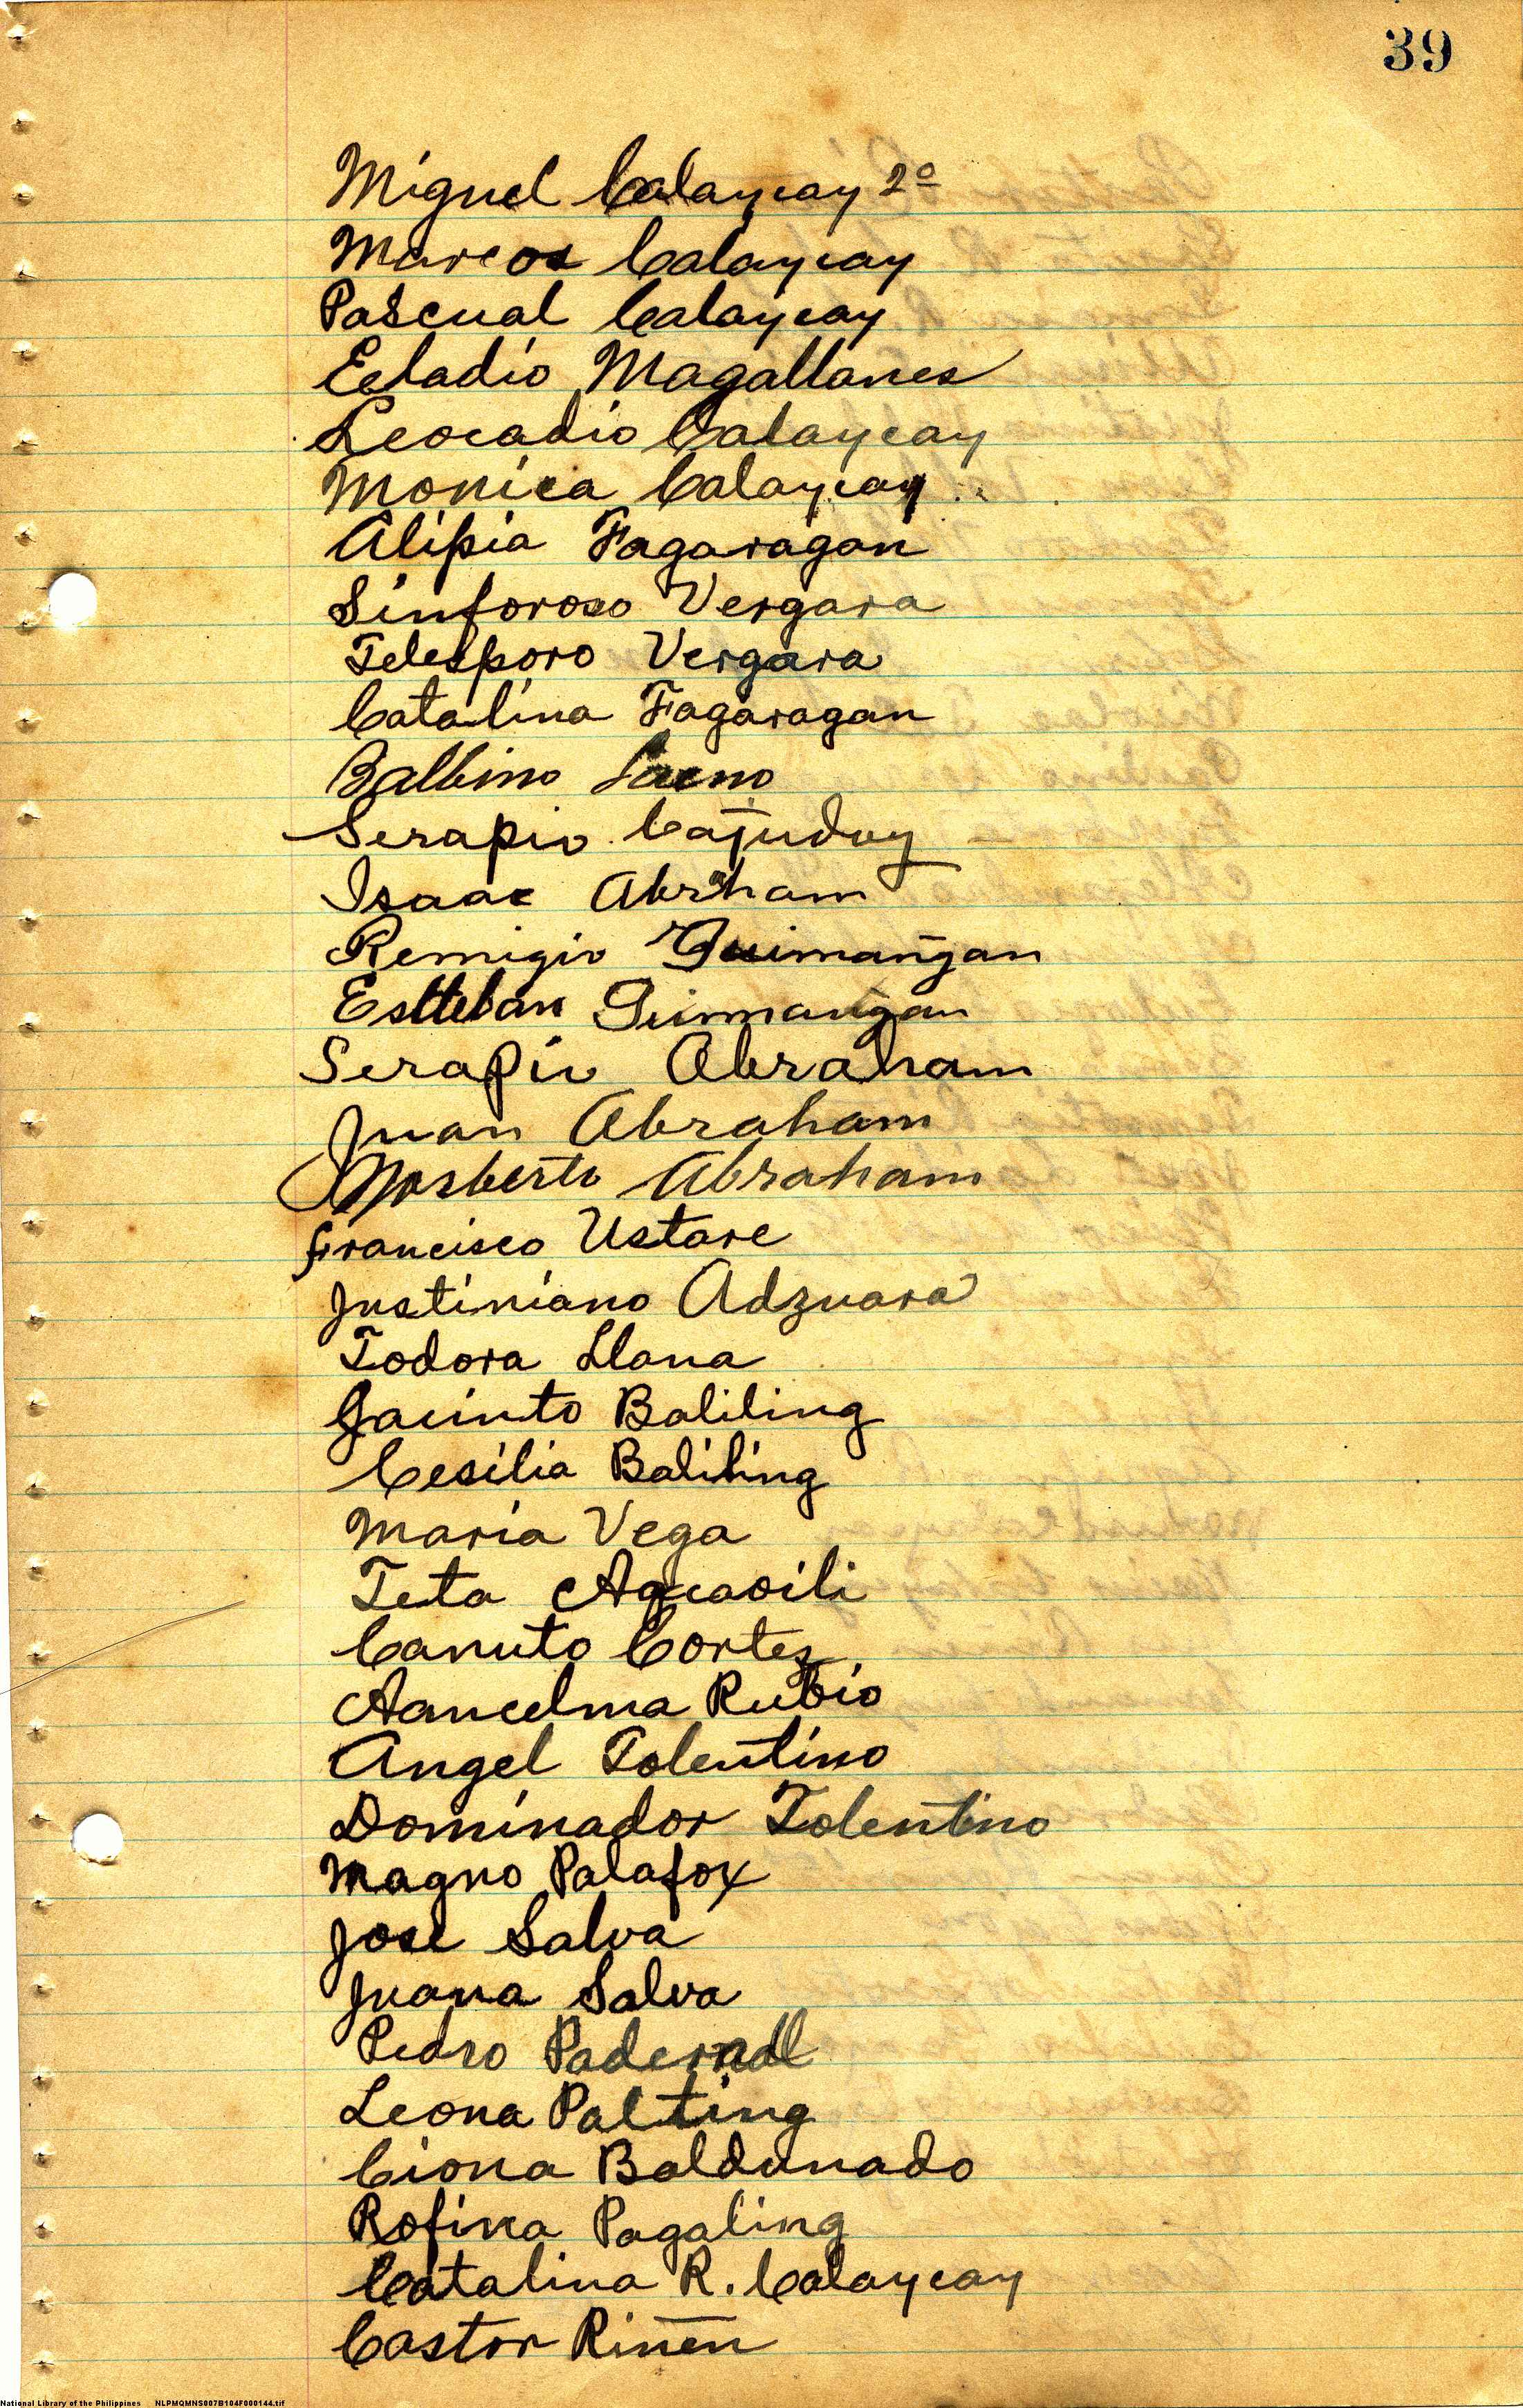 39
Miguel Calaycay 2º
Marcos Calaycay
Pascual Calaycay
Eeladio Magallanes
Leocadio Calaycay
Monica Calaycay
Alipia Fagaragan
Sinforoso Vergara
Telesporo Vergara
Catalina Fagaragan
Balbino
Serapio Cajuduy
Isaac Abraham
Remigio Guimangan
Estteban Guimangan
Serapio Abraham
Juan Abraham
Norberto Abraham
Francisco Ustare
Justiniano Adzuara
Todora Llana
Jacinto Baliling
Cesilia Baliling
Maria Vega
Teta Aqcaoili
Canuto Cortez
Aancelma Rubio
Angel Tolentino
Dominador Tolentino
Magno Palafox
Jose Salva
Juana Salva
Pedro Padernal
Leona Palting
Ciona Baldunado
Rofina Pagaling
Catalina R. Calaycay
Castor Riñen
National Library of the Philippines NLPMQMNS007B104F000144.tif